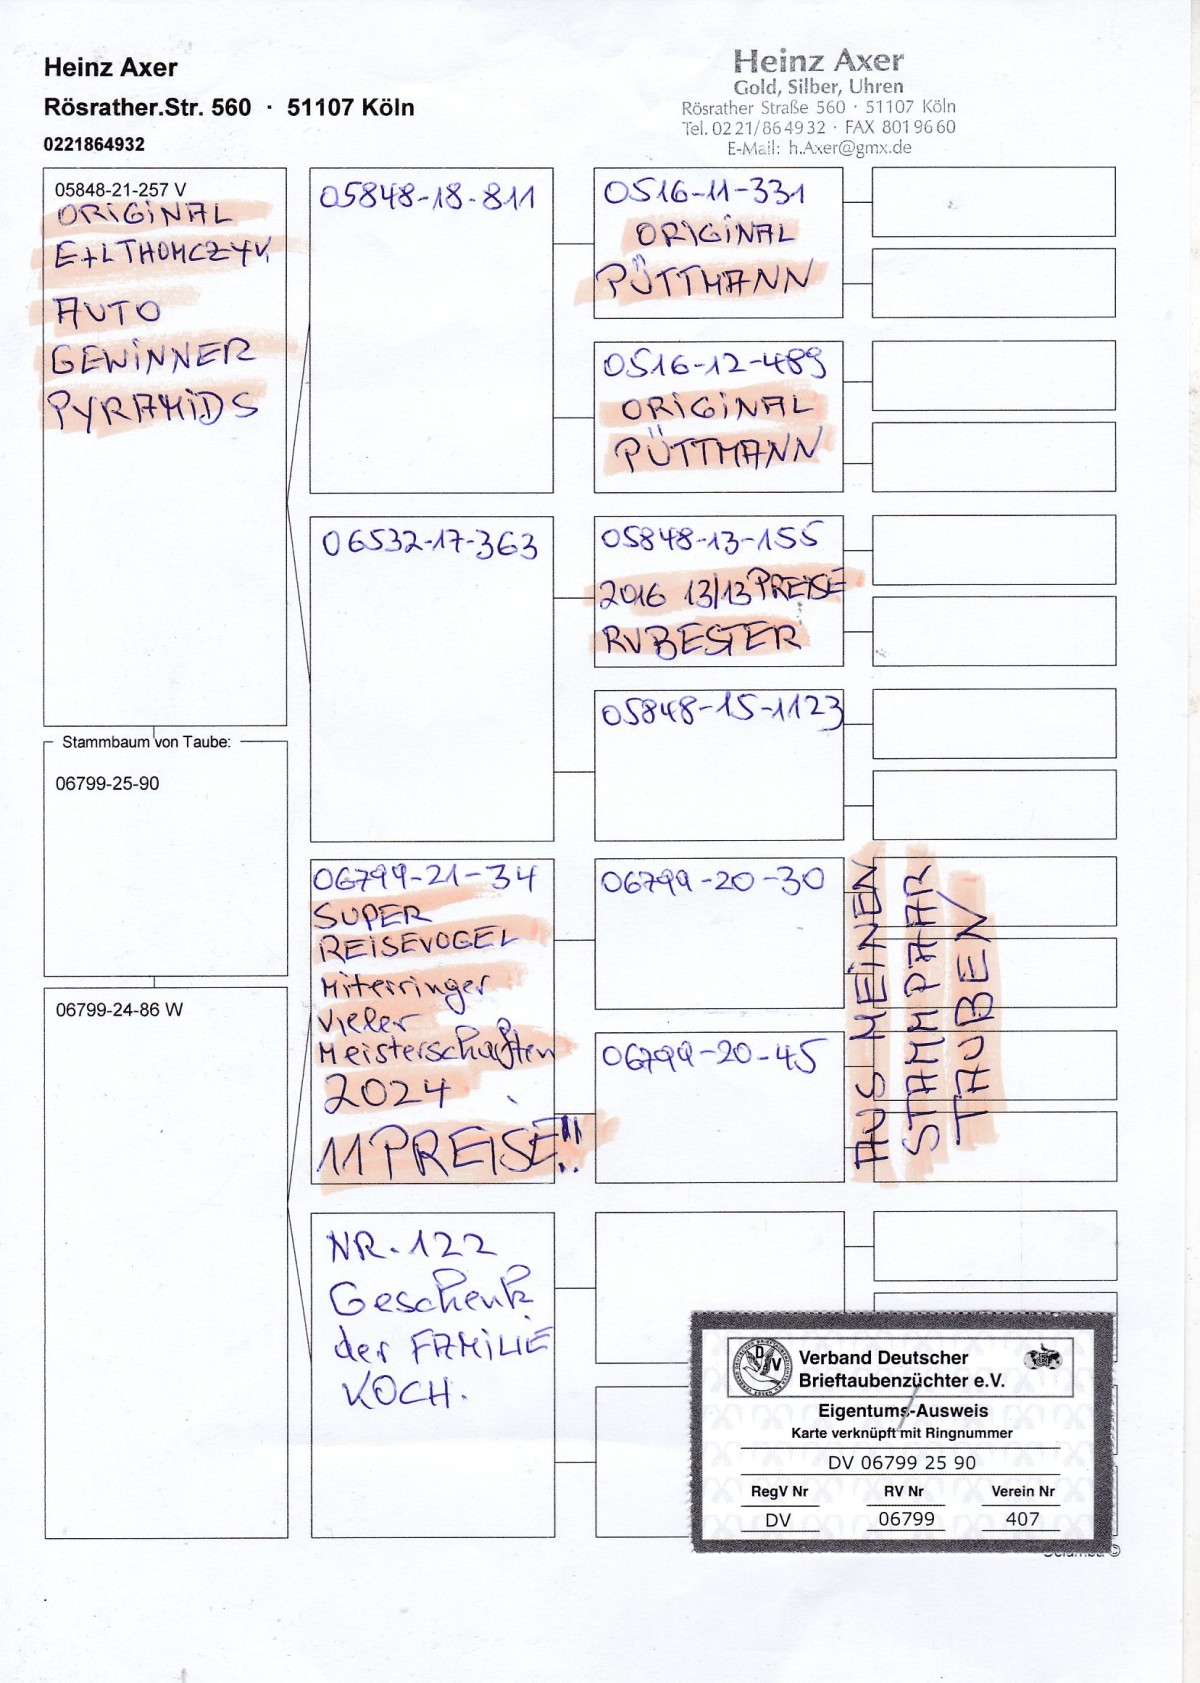 Heinz Axer
Rösrather.Str. 560 · 51107 Köln
0221864932
Heinz Axer
Gold, Silber, Uhren
Rösrather Straße 560 · 51107 Köln
Tel. 02 21/86 49 32 · FAX 801 96 60
E-Mail: h.Axer@gmx.de
05848-21-257 V
ORIGINAL
E+L THOMCZYK
AUTO
GEWINNER
PYRAMIDS
Stammbaum von Taube:
06799-25-90
06799-24-86 W
05848-18-811
06532-17-363
06799-21-34
SUPER
REISEVOGEL
Miterringer
Vieler
Meisterschaften
2024
11 PREISE!!
NR. 122
Geschenk
der FAMILIE
KOCH.
0516-11-331
ORIGINAL
PÜTTMANN
0516-12-489
ORIGINAL
PÜTTMANN
05848-13-155
2016 13/13 PREISE
RV BESTER
05848-15-1123
06799-20-30
06799-20-45
AUS MEINEN
STAMMPAAR
TAUBEN
Verband Deutscher
Brieftaubenzüchter e.V.
Eigentums-Ausweis
Karte verknüpft mit Ringnummer
DV 06799 25 90
RegV Nr RV Nr Verein Nr
DV 06799 407